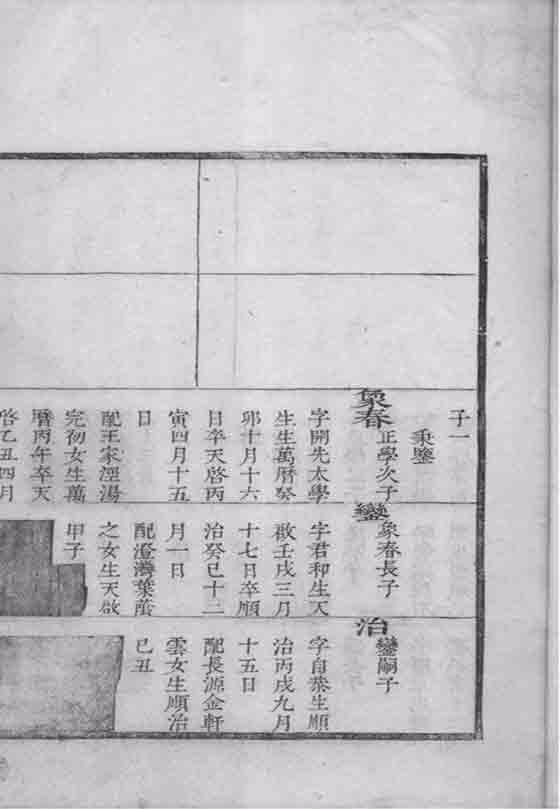 子一
秉鑒
象春
正學次子
字開先太學
生生萬曆癸
卯十月十六
日卒天啓丙
寅四月十五
日
配王家涇湯
完初女生萬
曆丙午卒天
啓乙丑四月
鑾
象春長子
字君和生天
啟壬戌三月
十七日卒順
治癸巳十二
月一日
配澄灣葉
之女生天啟
甲子
治
鑾嗣子
字自生順
治丙戌九月
十五日
配長源金軒
雲女生順治
己丑